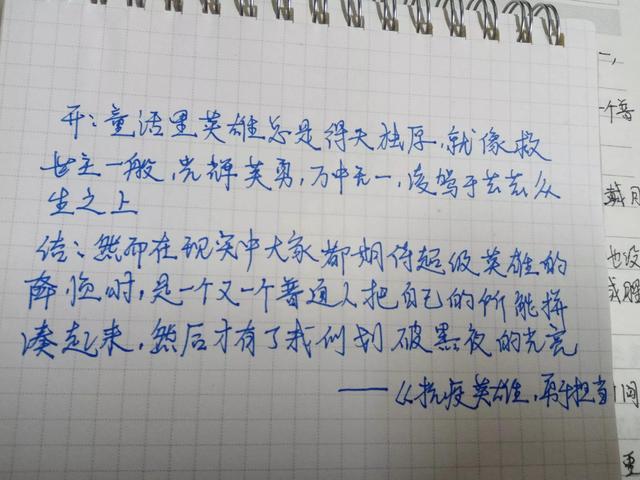 开：童话里英雄总是得天独厚，就像救
世主一般，光辉英勇，万中无一，凌驾于芸芸众
生之上
结：然而在现实中大家都期待超级英雄的
降临时，是一个又一个普通人把自己的所能拼
凑起来，然后才有了我们划破黑夜的光亮
——《抗疫英雄，勇于担当
一，
一个普
戴月
也没
问
更